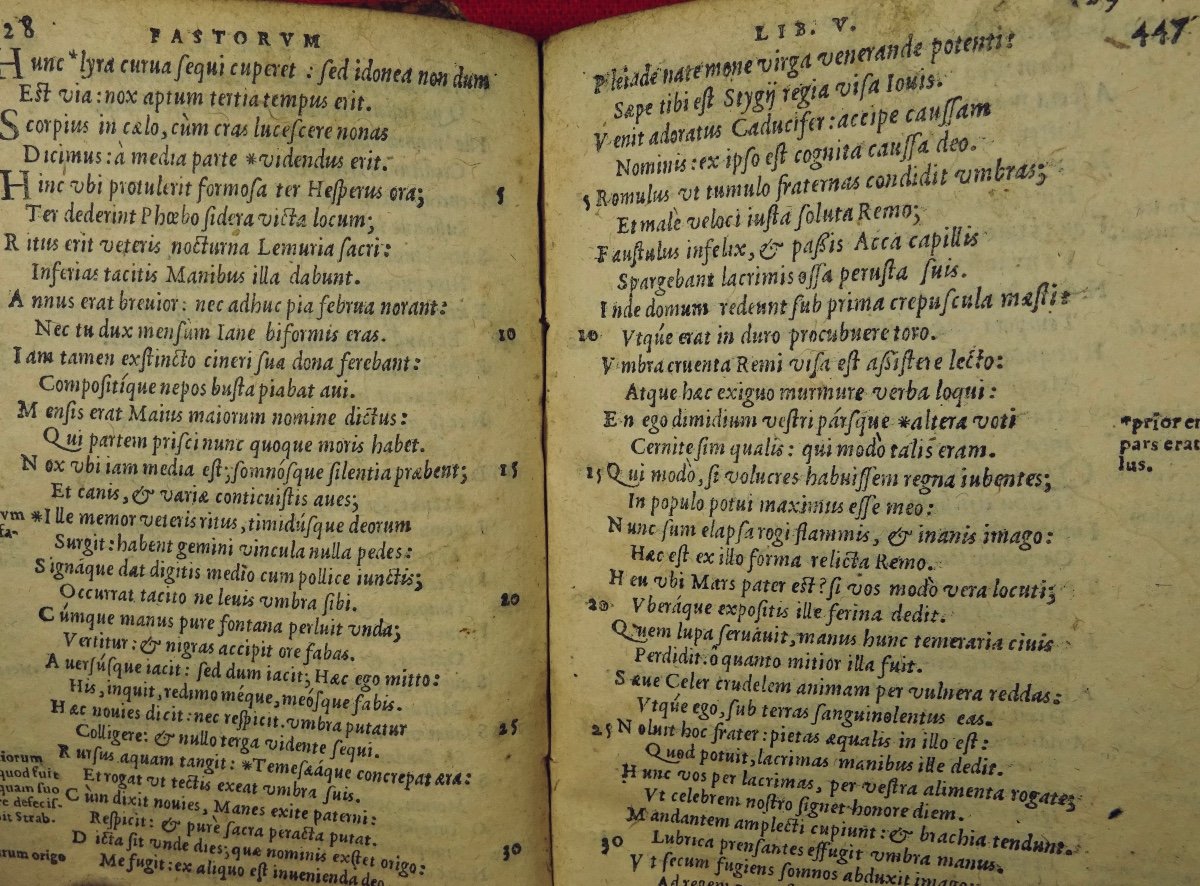 28
FASTORVM
Hunc *lyra curua sequi cuperet : sed idonea non dum
Est via: nox aptum tertia tempus erit.
Scorpius in cælo, cùm cras lucescere nonas
Dicimus: à media parte *videndus erit.
Hinc vbi protulerit formosa ter Hesperus ora;
5
Ter dederint Phœbo sidera victa locum;
Ritus erit veteris nocturna Lemuria sacri:
Inferias tacitis Manibus illa dabunt.
Annus erat breuior: nec adhuc pia februa norant:
Nec tu dux mensùm Iane biformis eras.
10
Iam tamen exstincto cineri sua dona ferebant:
Compositíque nepos busta piabat aui.
Mensis erat Maius maiorum nomine dictus:
Qui partem prisci nunc quoque moris habet.
Nox vbi iam media est; somnósque silentia præbent;
15
Et canis, & variæ conticuistis aues;
*Ille memor veteris ritus, timidúsque deorum
Surgit: habent gemini vincula nulla pedes:
Signáque dat digitis medio cum pollice iunctis;
Occurrat tacito ne leuis vmbra sibi.
20
Cúmque manus pure fontana perluit vnda;
Vertitur: & nigras accipit ore fabas.
Auersúsque iacit: sed dum iacit; Hæc ego mitto:
His, inquit, redimo méque, meósque fabis.
Hæc nouies dicit: nec respicit. vmbra putatur
25
Colligere: & nullo terga vidente sequi.
Rursus aquam tangit: *Temesæáque concrepat æra:
Et rogat vt tectis exeat vmbra suis.
Cùm dixit nouies, Manes exite paterni:
Respicit: & purè sacra peracta putat.
Dicta sit vnde dies; quæ nominis exstet origo:
30
Me fugit: ex aliquo est inuenienda deo.
vm
fa-
iorum
quod fuit
quam suo
re defecis-
it Strab.
arum origo
LIB. V.
447
Pleiade nate mone virga venerande potenti:
Sæpe tibi est Stygij regia visa Iouis.
Venit adoratus Caducifer: accipe caussam
Nominis: ex ipso est cognita caussa deo.
5 Romulus vt tumulo fraternas condidit vmbras;
Et malè veloci iusta soluta Remo;
Faustulus infelix, & passis Acca capillis
Spargebant lacrimis ossa perusta suis.
Inde domum redeunt sub prima crepuscula mæsti:
10 Vtqúe erat in duro procubuere toro.
Vmbra cruenta Remi visa est assistere lecto:
Atque hæc exiguo murmure verba loqui:
En ego dimidium vestri pársque *altera voti
Cernite sim qualis: qui modò talis eram.
15 Qui modò, si volucres habuissem regna iubentes;
In populo potui maximus esse meo:
Nunc sum elapsa rogi flammis, & inanis imago:
Hæc est ex illo forma relicta Remo.
Heu vbi Mars pater est? si vos modò vera locuti;
20 Vberáque expositis ille ferina dedit.
Quem lupa seruàuit, manus hunc temeraria ciuis
Perdidit. ô quanto mitior illa fuit.
Sæue Celer crudelem animam per vulnera reddas:
Vtqúe ego, sub terras sanguinolentus eas.
25 Noluit hoc frater: pietas æqualis in illo est:
Quod potuit, lacrimas manibus ille dedit.
Hunc vos per lacrimas, per vestra alimenta rogate;
Vt celebrem nostro signet honore diem.
Mandantem amplecti cupiunt: & brachia tendunt.
30 Lubrica prensantes effugit vmbra manus.
Vt secum fugiens somnos abduxit imago
Ad regem
*prior er
pars erat
lus.